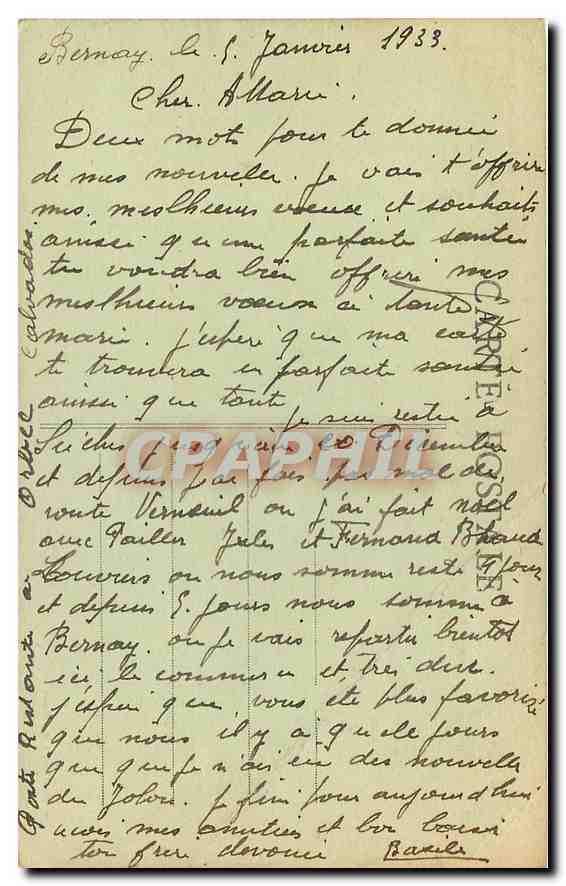 Bernay. le 5 Janvier 1933.
Cher. AMarie.
Deux mots pour te donnée
de mes nouvelle. Je vais t'offrire
mes. meslhieurs voeux et souhaits
ainsi qu'une parfaite santée
tu voudra bien offrire mes
meslhieurs voeux a tante
marie. j'espere que ma carte
te trouvera en parfaite santée
ainsi que tante
je suis restée à
jusqu'au 20 Décembre
et depuis j'ai fais pas mal de
route Verneuil ou j'ai fait noel
avec Pailler Jules et Fernand Bhaud
Louviers ou nous somme reste 4 jours
et depuis 5. jours nous somme à
Bernay. ou je vais repartir bientot
ici le commerce et trés dur.
j'espere que vous éte plus favorisé
que nous il y a quelé jours
que je n'ais eu des nouvelle
du Jolou. je fini pour aujourd'hui
mes amities et bon baiser
ton frere devouée Basile
Poste Restante a Orbec Calvados.
CARTE POSTALE
CPAPHIL